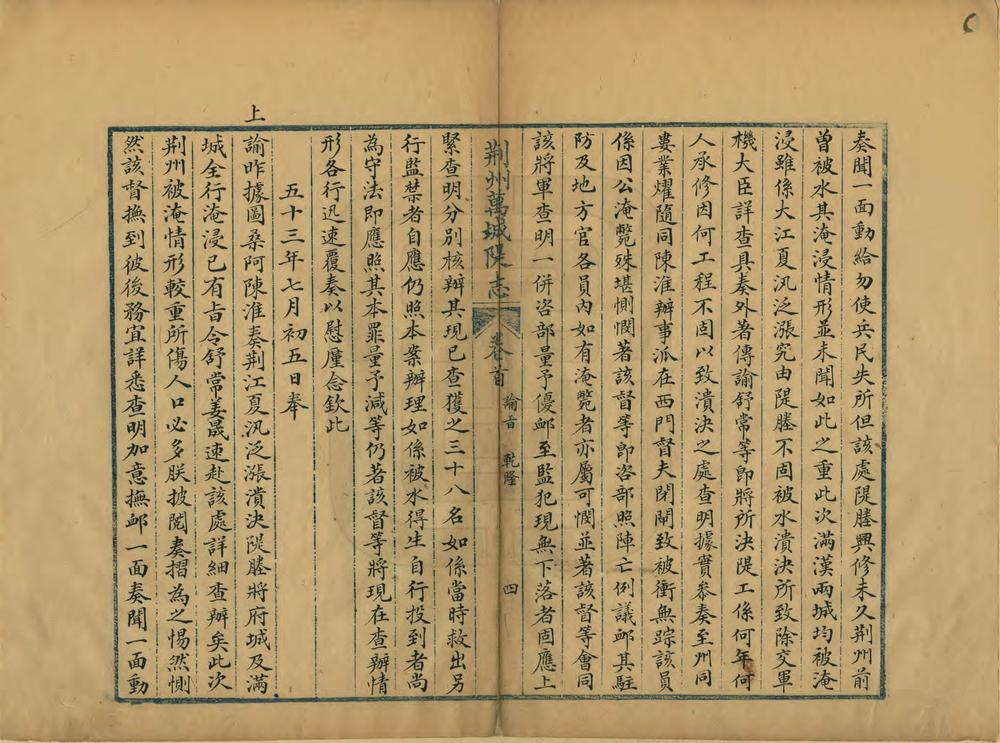 奏聞一面動給勿使兵民失所但該處隄塍興修未久荆州前
曾被水其淹浸情形並未聞如此之重此次滿漢兩城均被淹
浸雖係大江夏汛泛漲究由隄塍不固被水潰決所致除交軍
機大臣詳查具奏外著傳諭舒常等卽將所決隄工係何年何
人承修因何工程不固以致潰決之處查明據實叅奏至州同
婁業燿隨同陳淮辦事派在西門督夫閉閘致被衝無踪該員
係因公淹斃殊堪惻憫著該督等卽咨部照陣亡例議邮其駐
防及地方官各員內如有淹斃者亦屬可憫並著該督等會同
該將軍查明一併咨部量予優邮至監犯現無下落者固應上
荆州萬城隄志 卷首 諭旨 乾隆 四
緊查明分別核辦其現已查獲之三十八名如係當時救出另
行監禁者自應仍照本案辦理如係被水得生自行投到者尚
為守法卽應照其本罪量予減等仍著該督等將現在查辦情
形各行迅速覆奏以慰厪念欽此
五十三年七月初五日奉
上
諭昨據圖桑阿陳淮奏荆江夏汛泛漲潰決隄塍將府城及滿
城全行淹浸已有旨令舒常姜晟速赴該處詳細查辦矣此次
荆州被淹情形較重所傷人口必多朕披閱奏摺為之惕然惻
然該督撫到彼後務宜詳悉查明加意撫邮一面奏聞一面動